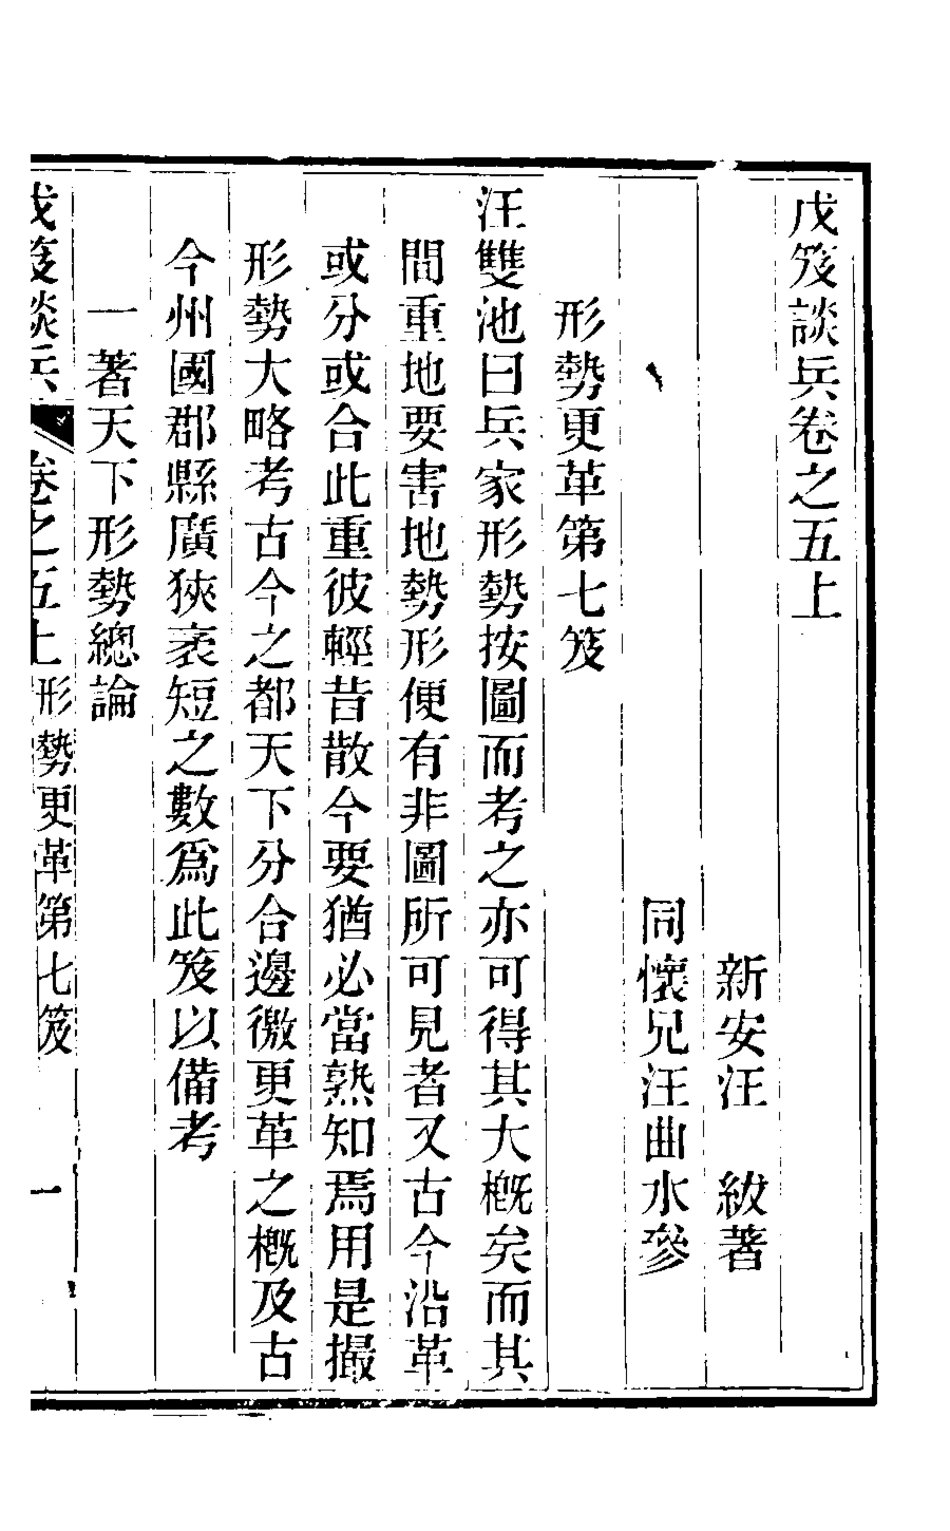 戊笈談兵卷之五上
新安汪 紱著
同懷兄汪曲水參
形勢更革第七笈
汪雙池曰兵家形勢按圖而考之亦可得其大槪矣而其
間重地要害地勢形便有非圖所可見者又古今沿革
或分或合此重彼輕昔散今要猶必當熟知焉用是撮
形勢大略考古今之都天下分合邊徼更革之槪及古
今州國郡縣廣狹袤短之數爲此笈以備考
一著天下形勢總論
戊笈談兵 卷之五上 形勢更革第七笈 一